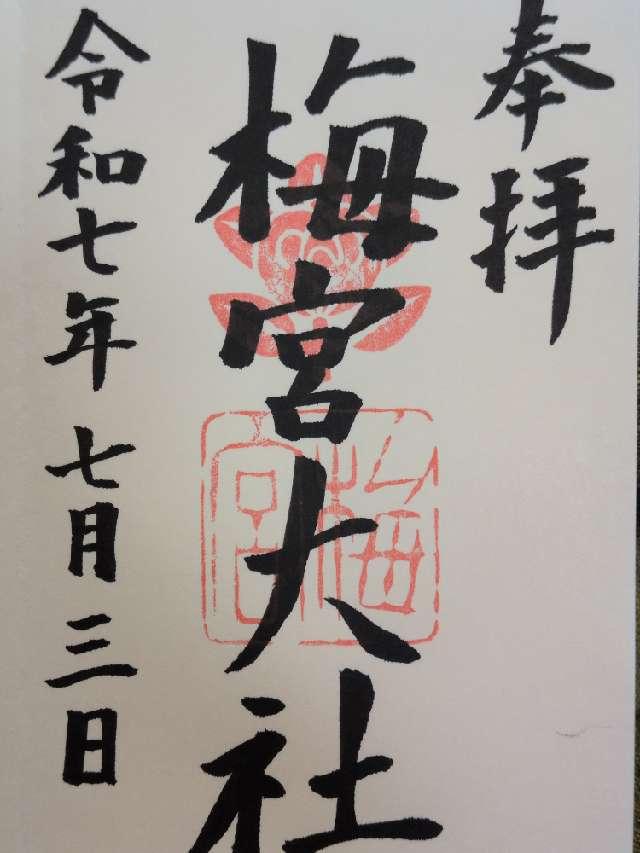 奉拝
梅宮大社
梅宮
令和七年七月三日